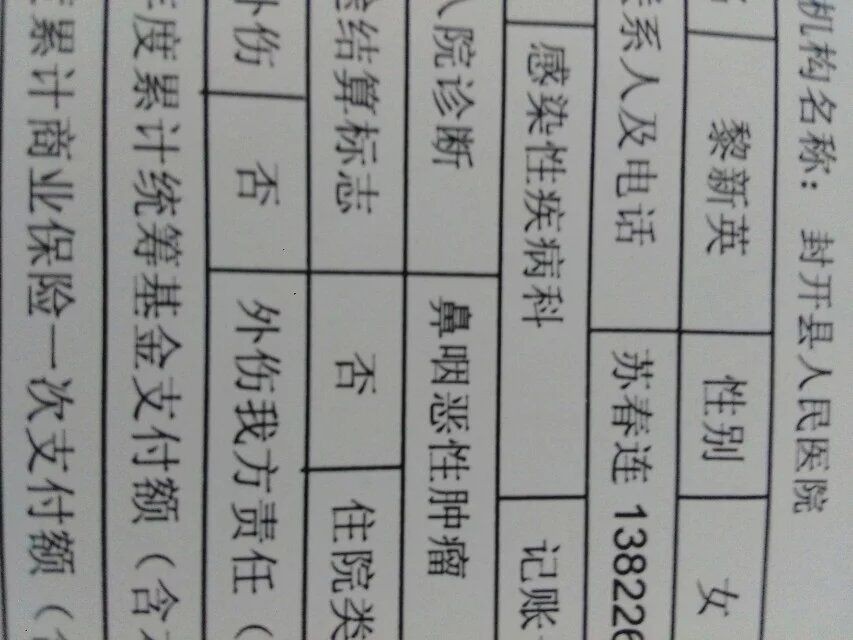 机构名称： 封开县人民医院
黎新英 性别 女
系人及电话 苏春连 138226
感染性疾病科 记账
院诊断 鼻咽恶性肿瘤
结算标志 否 住院类
外伤 否 外伤我方责任（
年度累计统筹基金支付额（含
累计商业保险一次支付额（